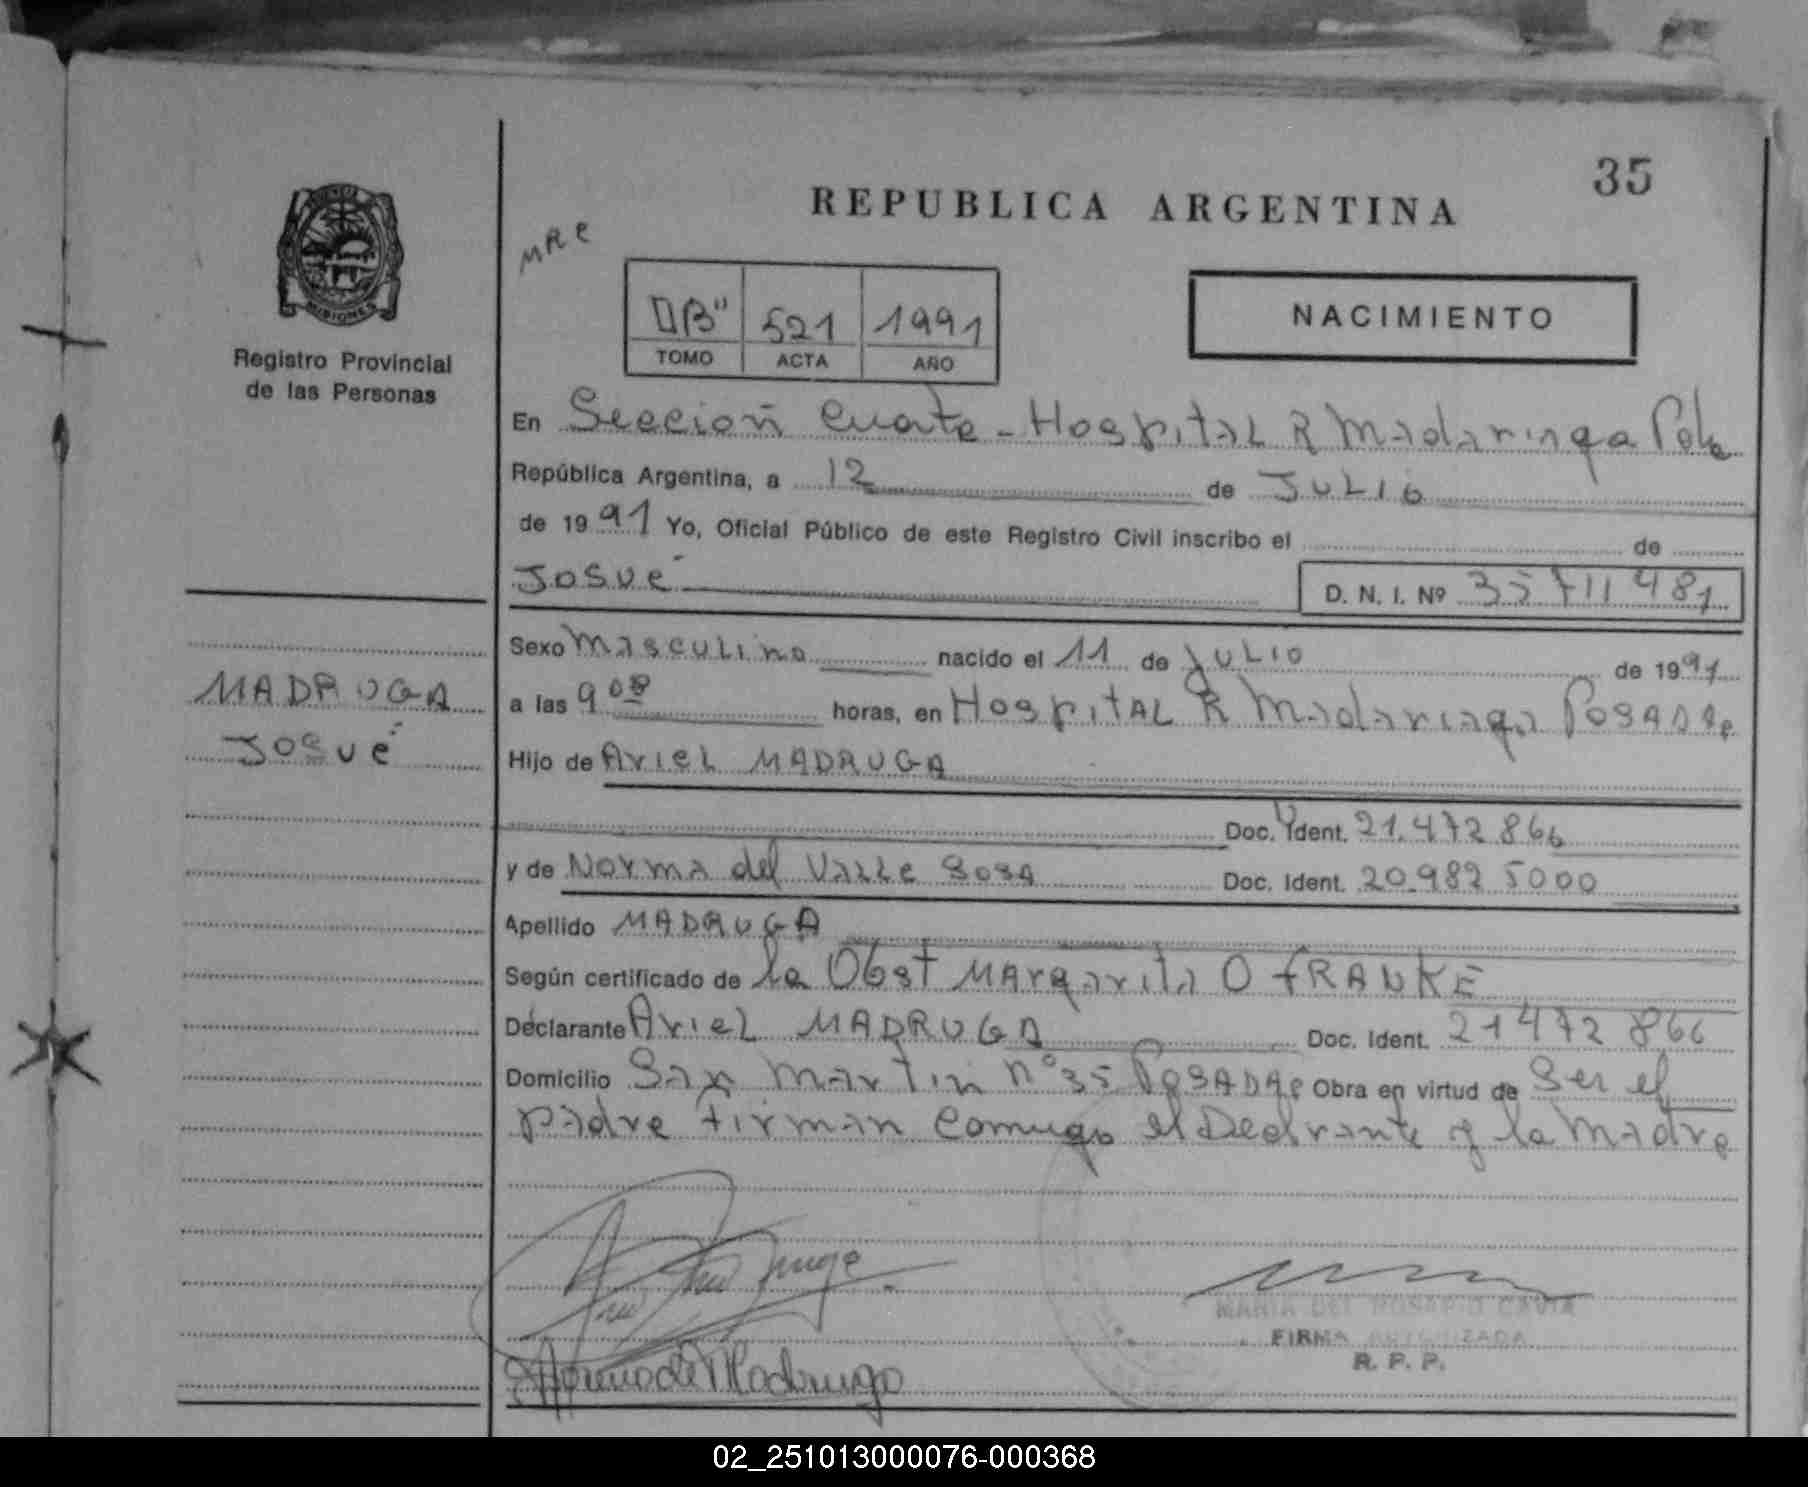 35
REPUBLICA ARGENTINA
MRC
PROVINCIA
MISIONES
Registro Provincial
de las Personas
"B" 521 1991
TOMO ACTA AÑO
NACIMIENTO
En Sección Cuarta - Hospital R Madariaga Pdas
República Argentina, a 12 de JULIO
de 1991 Yo, Oficial Público de este Registro Civil inscribo el de
JOSUÉ
D. N. I. Nº 35711481
Sexo Masculino nacido el 11 de JULIO de 1991
a las 9 00 horas, en Hospital R Madariaga POSADAS
Hijo de Ariel MADRUGA
Doc. Ident. 21.472866
y de Norma del Valle SOSA Doc. Ident. 20.982 5000
Apellido MADRUGA
Según certificado de la Obst Margarita O FRANKE
Declarante Ariel MADRUGA Doc. Ident. 21472 866
Domicilio San Martin nº 35 POSADAS Obra en virtud de Ser el
padre firman conmigo el Declarante y la Madre
MADRUGA
JOSUÉ
de Madruga
MARIA DEL ROSARIO CAVIA
FIRMA AUTORIZADA
R. P. P.
02_251013000076-000368